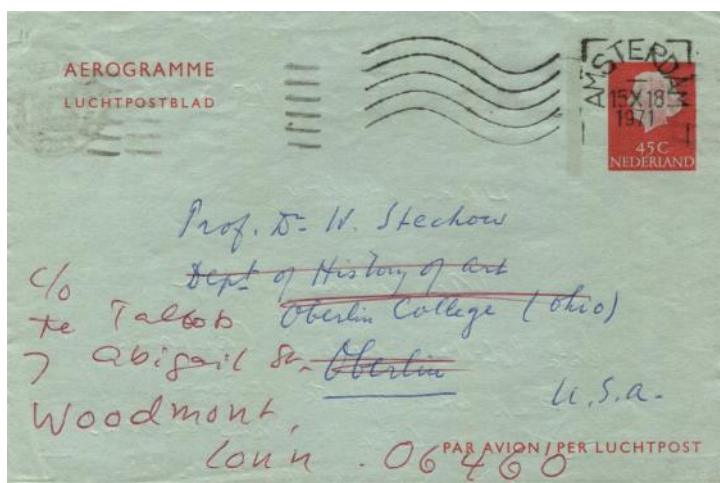 AEROGRAMME
LUCHTPOSTBLAD
AMSTERDAM
15 X 18
1971
45 C
NEDERLAND
Prof. Dr. W. Stechow
Dept of History of Art
Oberlin College (Ohio)
Oberlin
U.S.A.
c/o
Talbots
7 Abigail St.
Woodmont,
Conn. 06460
PAR AVION / PER LUCHTPOST